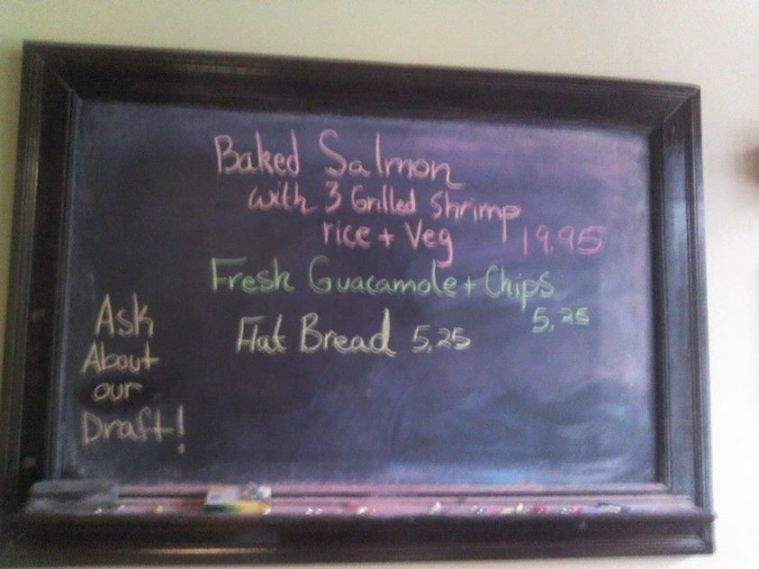 Baked Salmon
with 3 Grilled Shrimp
rice + Veg 19.95
Fresh Guacamole + Chips
5.25
Flat Bread 5.25
Ask
About
our
Draft!